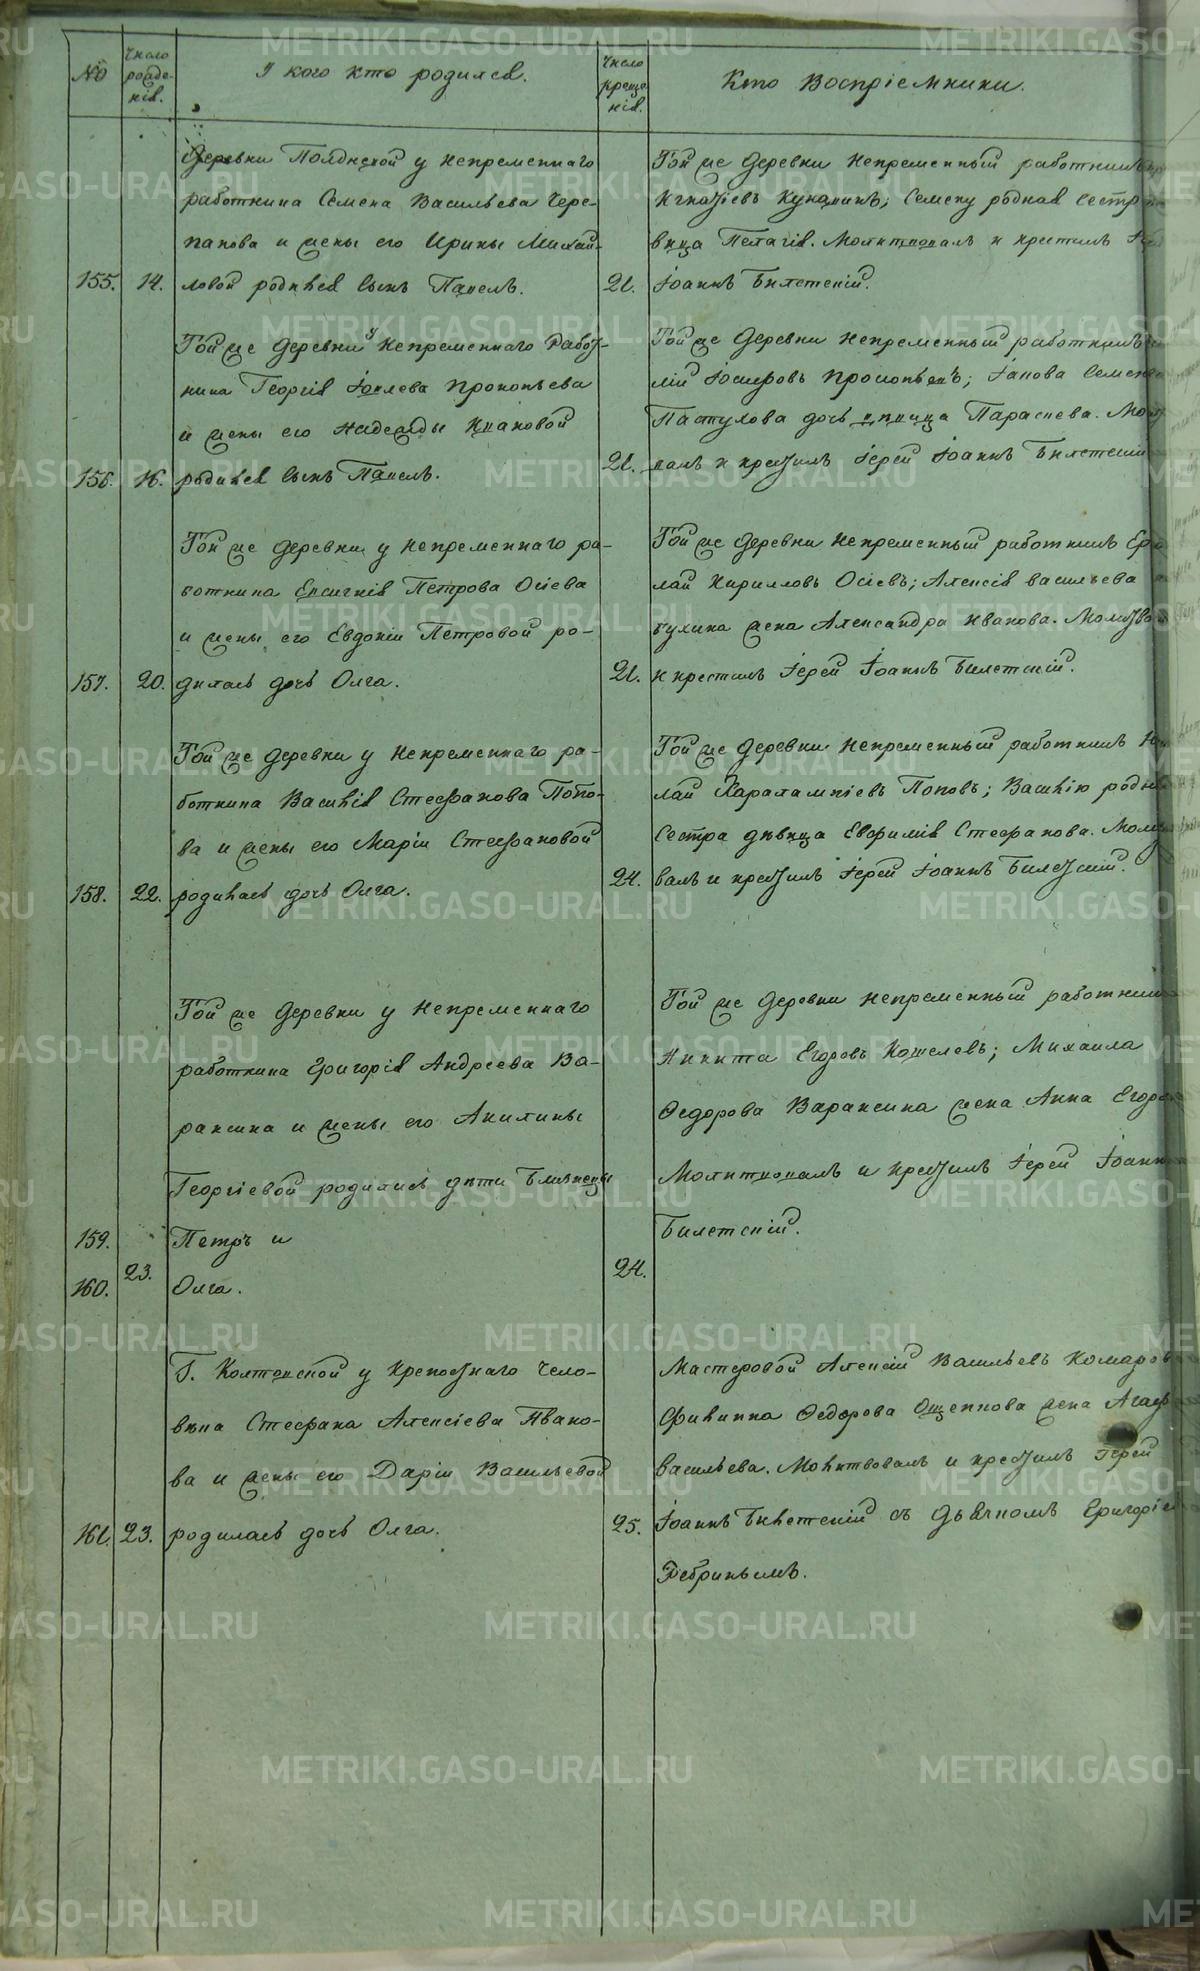 №
Число рожде-нія.
У кого кто родился.
Число креще-нія.
Кто Воспріемники.
Деревни Полднеѵой у непременнаго
работника Семена Васильева Чере-
панова и жены его Ирины Михай-
155. 14. ловой родился сынъ Павелъ.
Той же деревни непременный работникъ
Игнатіевъ Кунгинъ; Семену родная сестра
вица Пелагія. Молитвовалъ и крестилъ
21. Іоаннъ Билетскій.
Той же деревни у непременнаго работ-
ника Георгія Іовлева Прокопьева
и жены его Надежды Ивановой
156. 16. родился сынъ Павелъ.
Той же деревни непременный работникъ
лій Іосифовъ Прокопьевъ; Іакова Семенова
Пастухова дочь девица Параскева.
21. валъ и крестилъ Іерей Іоаннъ Билетскій
Той же деревни у непременнаго ра-
ботника Евсигнія Петрова Осіева
и жены его Евдокіи Петровой ро-
157. 20. дилась дочь Олга.
Той же деревни непременный работникъ
лай Кирилловъ Осіевъ; Алексія Васильева
жена Александра Иванова.
21. и крестилъ Іерей Іоаннъ Билетскій.
Той же деревни у непременнаго ра-
ботника Василія Стефанова Попо-
ва и жены его Маріи Стефановой
158. 22. родилась дочь Олга.
Той же деревни непременный работникъ
лай Харалампіевъ Поповъ; Василію родная
сестра дѣвица Евфимія Стефанова.
24. валъ и крестилъ Іерей Іоаннъ Билетскій.
Той же деревни у непременнаго
работника Григорія Андреева Ва-
раксина и жены его Акилины
Георгіевой родились дѣти близнецы
159. Петръ и
23.
160. Олга.
Той же деревни непременный работникъ
Никита Егоровъ Кошелевъ; Михаила
Федорова Вараксина жена Анна
Молитвовалъ и крестилъ Іерей Іоаннъ
Билетскій.
24.
Г. Колтовской у крепостнаго чело-
века Стефана Алексіева Ивано-
ва и жены его Даріи Васильевой
161. 23. родилась дочь Олга.
Мастеровой Алексій Васильевъ Комаровъ
Филиппа Федорова Ощепкова жена
Васильева. Молитвовалъ и крестилъ Іерей
25. Іоаннъ Билетскій съ дьячкомъ Григоріемъ
METRIKI.GASO-URAL.RU